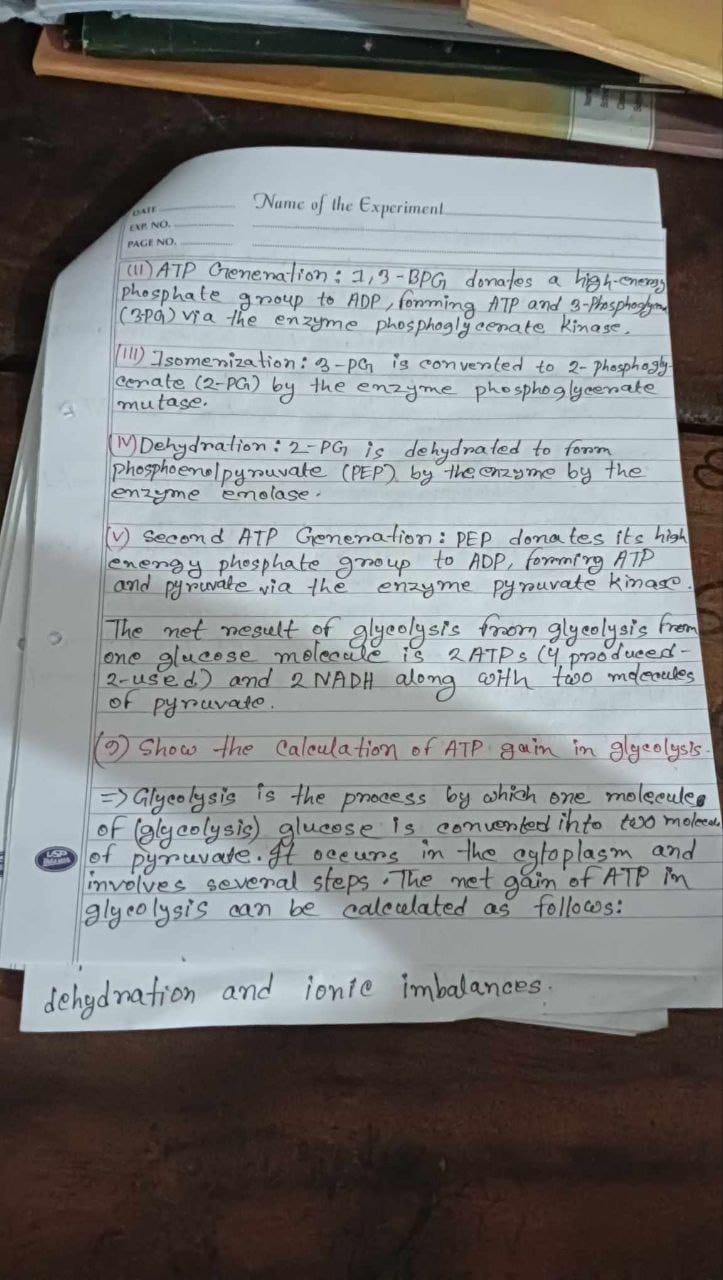 Name of the Experiment
DATE
EXP. NO.
PAGE NO.
(11) ATP Generation : 1,3-BPG donates a high-energy
phosphate group to ADP, forming ATP and 3-Phosphoglyce
(3PG) via the enzyme phosphoglycerate kinase.
(iii) Isomerization: 3-PG is converted to 2-phosphogly-
cerate (2-PG) by the enzyme phosphoglycerate
mutase.
(iv) Dehydration : 2-PG is dehydrated to form
phosphoenolpyruvate (PEP) by the enzyme by the
enzyme enolase.
(v) Second ATP Generation : PEP donates its high
energy phosphate group to ADP, forming ATP
and pyruvate via the enzyme pyruvate kinase.
The net result of glycolysis from glycolysis from
one glucose molecule is 2 ATPs (4 produced-
2-used) and 2 NADH along with two molecules
of pyruvate.
(9) Show the Calculation of ATP gain in glycolysis.
=> Glycolysis is the process by which one molecule
of (glycolysis) glucose is converted into two molecule
of pyruvate. It occurs in the cytoplasm and
involves several steps. The net gain of ATP in
glycolysis can be calculated as follows:
USP
dehydration and ionic imbalances.